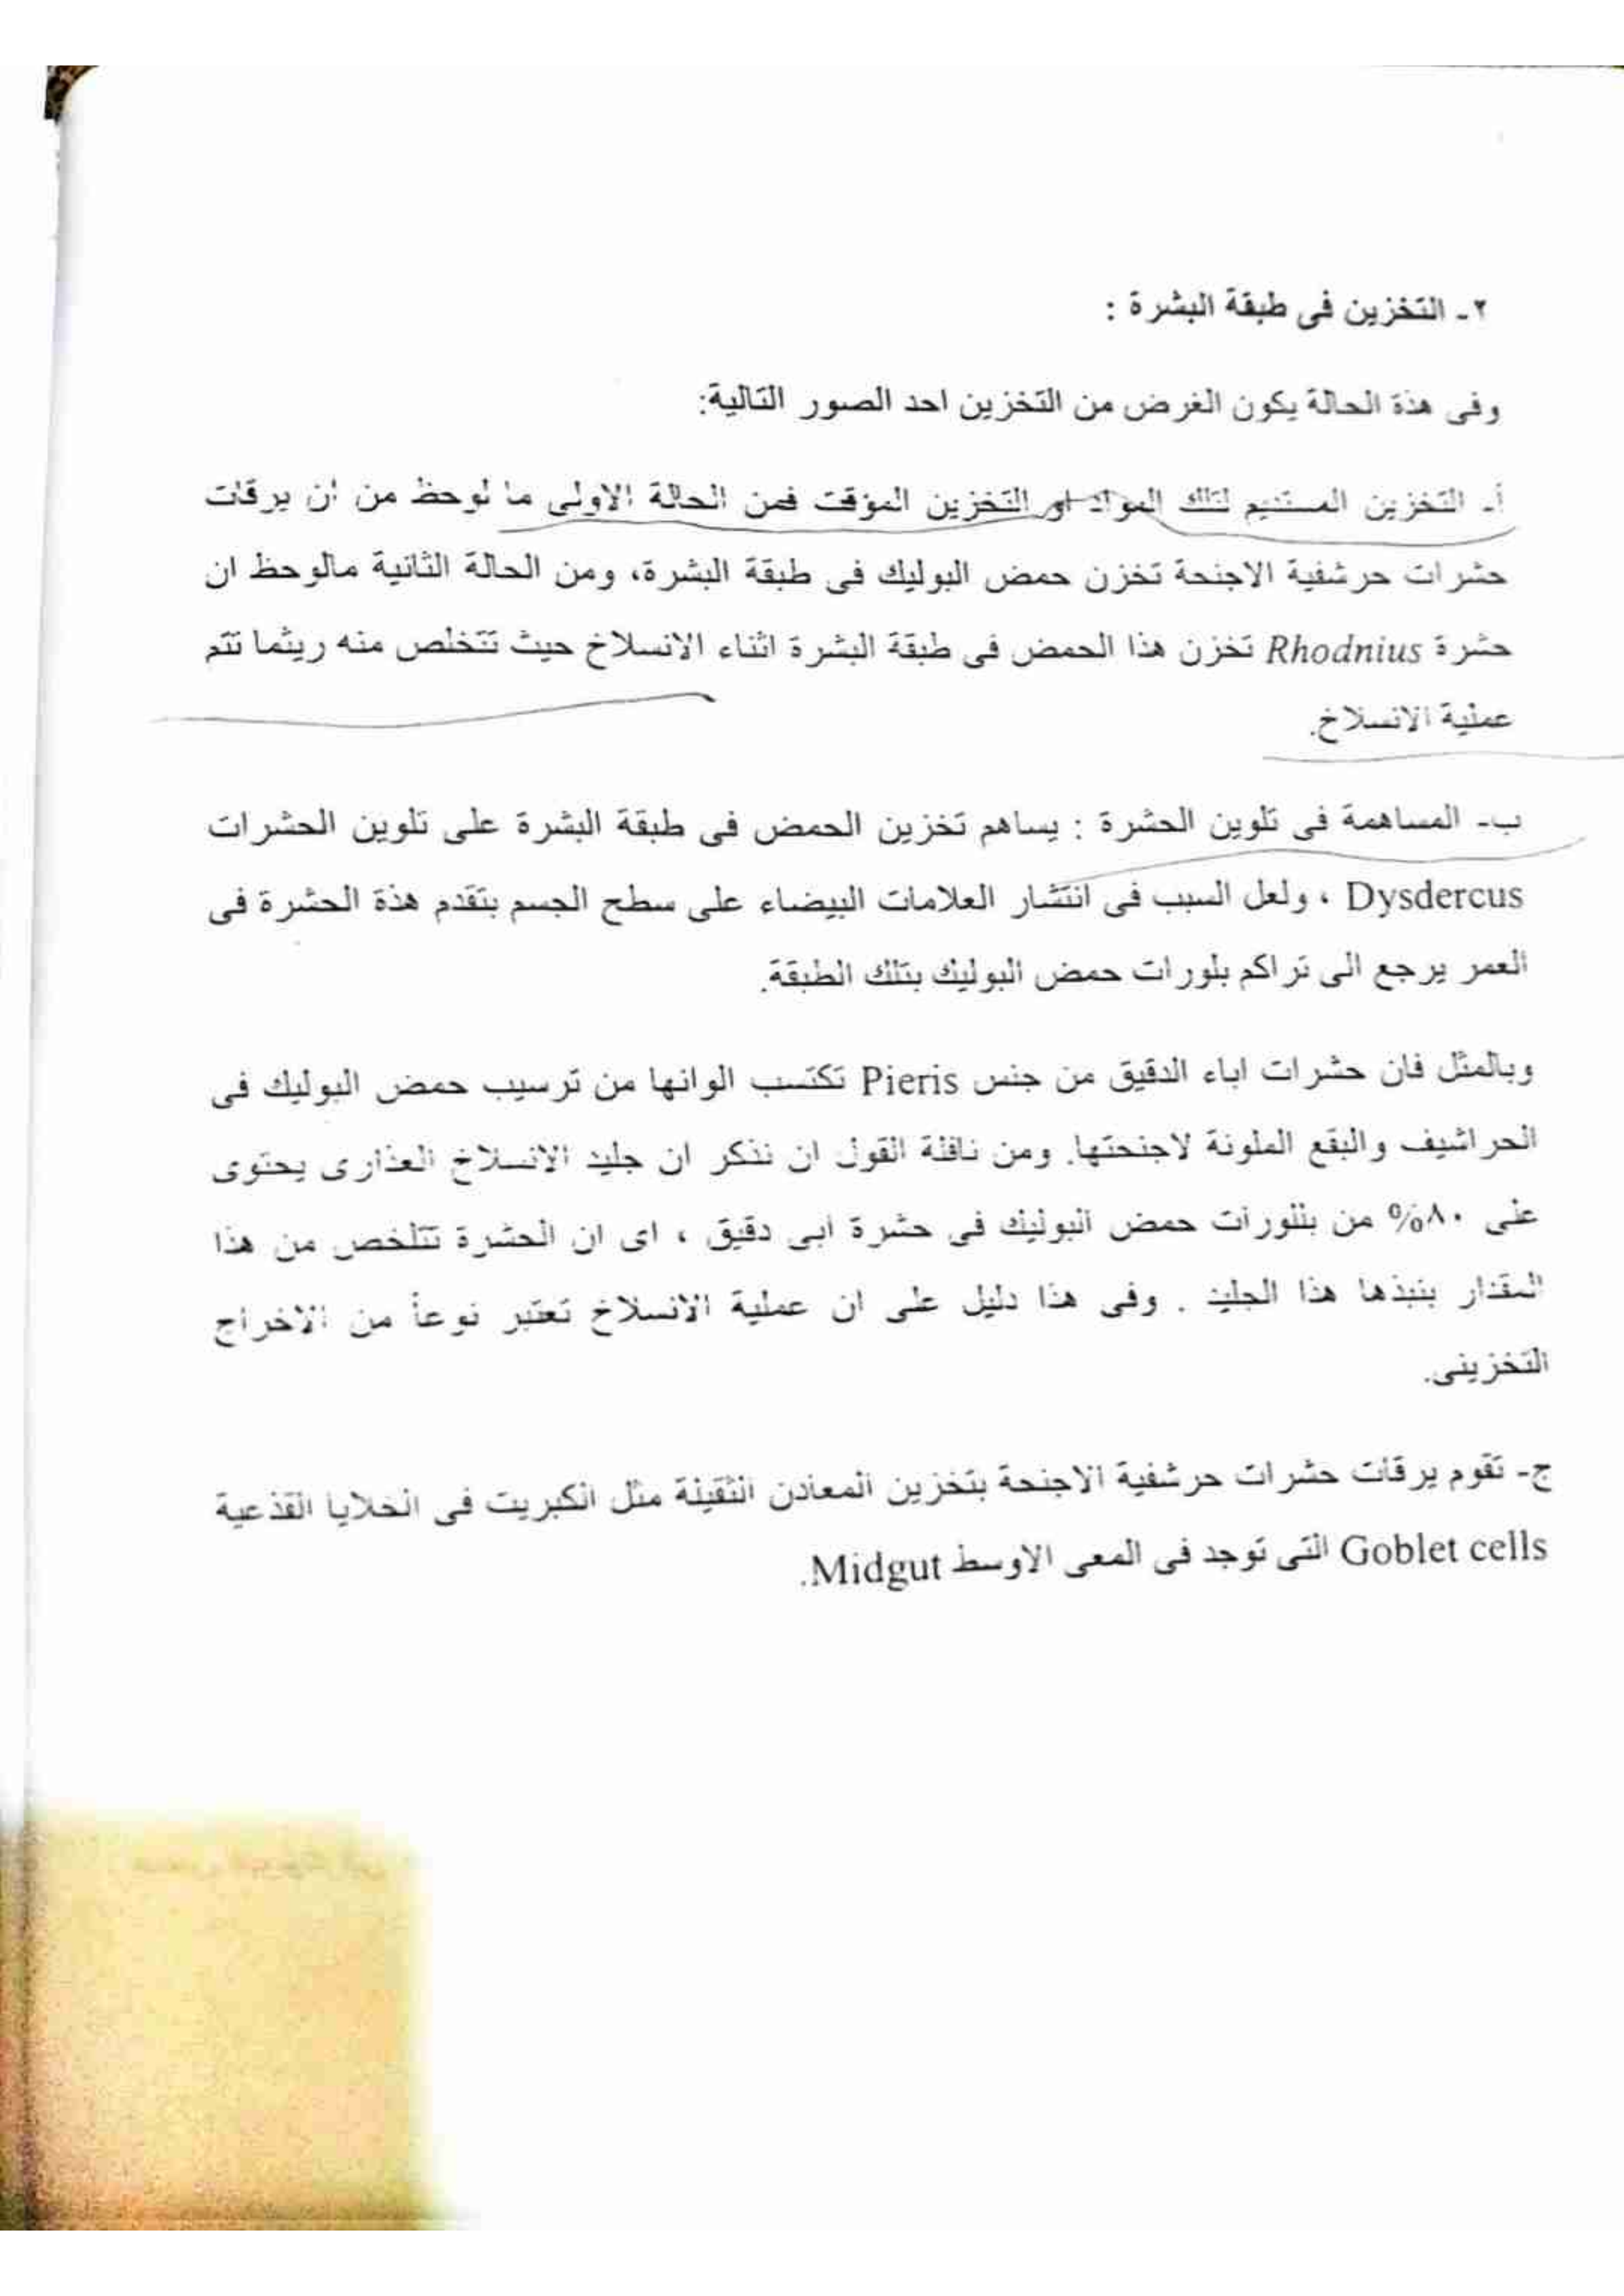 ٢- التخزين فى طبقة البشرة :
وفى هذة الحالة يكون الغرض من التخزين احد الصور التالية:
أ- التخزين المستديم لتلك المواد او التخزين المؤقت فمن الحالة الاولى ما لوحظ من ان يرقات
حشرات حرشفية الاجنحة تخزن حمض البوليك فى طبقة البشرة، ومن الحالة الثانية مالوحظ ان
حشرة Rhodnius تخزن هذا الحمض فى طبقة البشرة اثناء الانسلاخ حيث تتخلص منه ريثما تتم
عملية الانسلاخ.
ب- المساهمة فى تلوين الحشرة : يساهم تخزين الحمض فى طبقة البشرة على تلوين الحشرات
Dysdercus ، ولعل السبب فى انتشار العلامات البيضاء على سطح الجسم بتقدم هذة الحشرة فى
العمر يرجع الى تراكم بلورات حمض البوليك بتلك الطبقة.
وبالمثل فان حشرات اباء الدقيق من جنس Pieris تكتسب الوانها من ترسيب حمض البوليك فى
الحراشيف والبقع الملونة لاجنحتها. ومن نافلة القول ان نذكر ان جليد الانسلاخ العذارى يحتوى
على ٨٠% من بللورات حمض البوليك فى حشرة ابى دقيق ، اى ان الحشرة تتلخص من هذا
المقدار بنبذها هذا الجليد . وفى هذا دليل على ان عملية الانسلاخ تعتبر نوعاً من الاخراج
التخزينى.
ج- تقوم يرقات حشرات حرشفية الاجنحة بتخزين المعادن الثقيلة مثل الكبريت فى الخلايا القذعية
Goblet cells التى توجد فى المعى الاوسط Midgut.